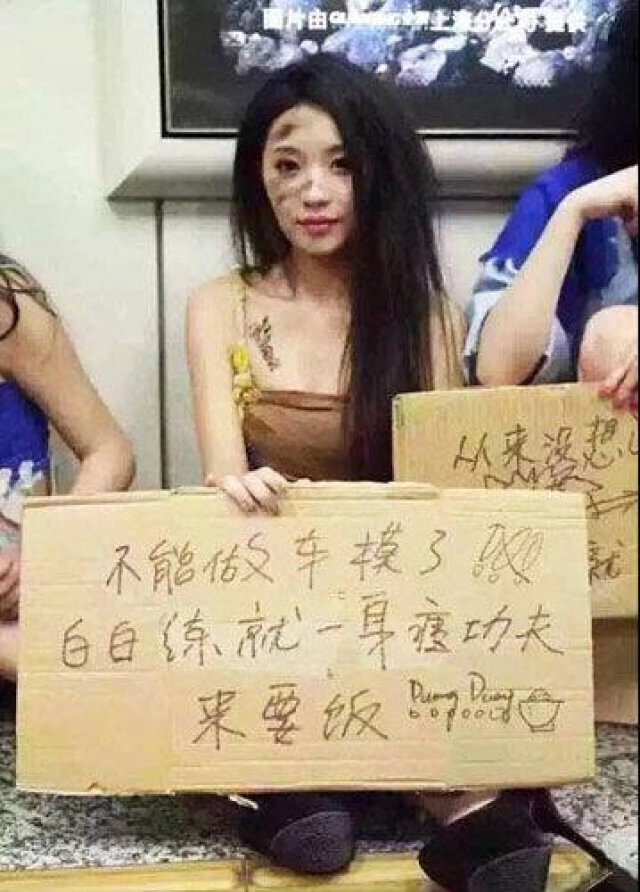 图片由 上海分
从来没想
不能做车模了
就
白白练就一身功夫
来要饭 Duang Duang